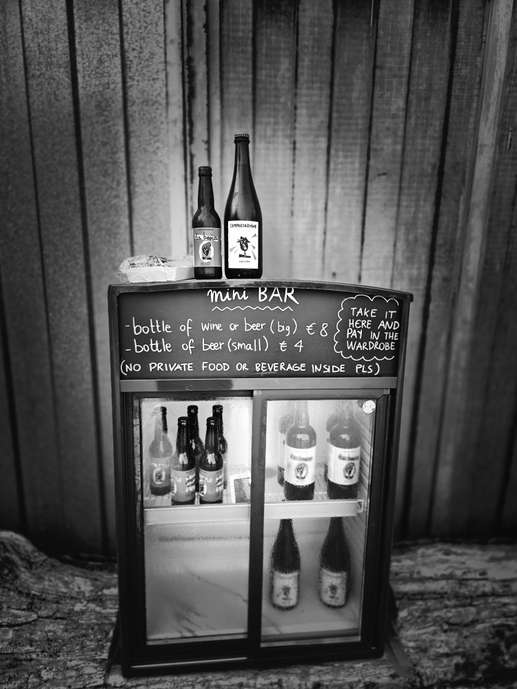 mini BAR
-bottle of wine or beer (big) € 8
-bottle of beer (small) € 4
(NO PRIVATE FOOD OR BEVERAGE INSIDE PLS)
TAKE IT
HERE AND
PAY IN THE
WARDROBE